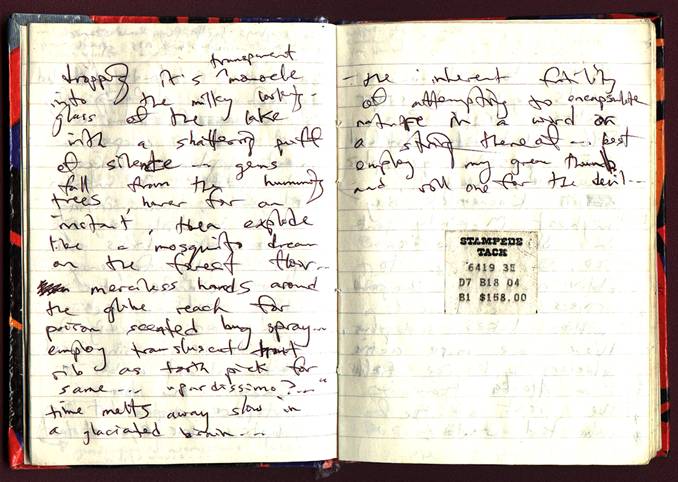 transparent
dropping it's monocle
into the milky
glass of the lake
with a shattering puff
of silence ... gems
fall from the humming
trees, hover for an
instant, then explode
like a mosquito dream
on the forest floor...
merciless hands around
the globe reach for
poison scented bug spray...
employ transluscent trout
rib as tooth pick for
same ...
time melts away slow in
a glaciated brain...
- the inherent futility
of attempting to encapsulate
nature in a word or
a string thereof ... best
employ my green thumb
and roll one for the devil...
STAMPEDE
TACK
6419 3E
D7 B18 04
B1 $158.00